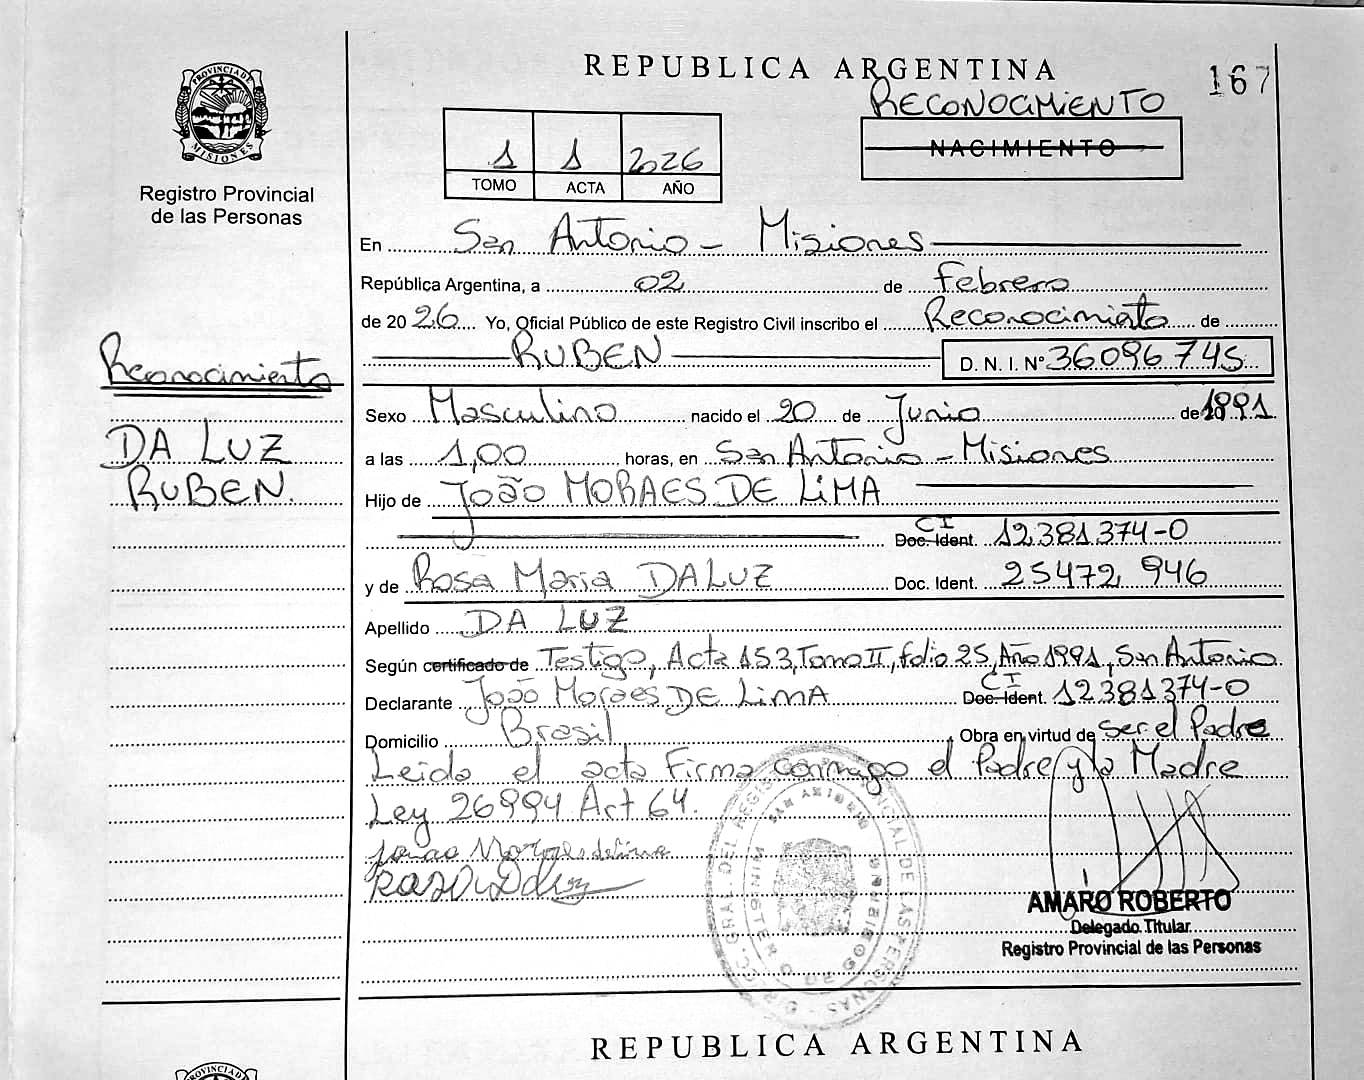 REPUBLICA ARGENTINA
167
RECONOCIMIENTO
NACIMIENTO
PROVINCIA DE MISIONES
Registro Provincial
de las Personas
1 1 2026
TOMO ACTA AÑO
En San Antonio - Misiones
República Argentina, a 02 de Febrero
de 2026 Yo, Oficial Público de este Registro Civil inscribo el Reconocimiento de
RUBEN D. N. I. Nº 36096745
Reconocimiento
DA LUZ
RUBEN.
Sexo Masculino nacido el 20 de Junio de 1991
a las 1,00 horas, en San Antonio - Misiones
Hijo de João MORAES DE LiMA
CI Doc. Ident. 12381374-0
y de Rosa Maria DA LUZ Doc. Ident. 25472946
Apellido DA LUZ
Según certificado de Testigo, Acta 153, Tomo II, folio 25, Año 1991, San Antonio
Declarante João Moraes DE LiMA CI Doc. Ident. 12381374-0
Domicilio Brasil Obra en virtud de ser el Padre
Leida el acta Firma conmigo el Padre y la Madre
Ley 26994 Art 64.
AMARO ROBERTO
Delegado Titular
Registro Provincial de las Personas
REPUBLICA ARGENTINA